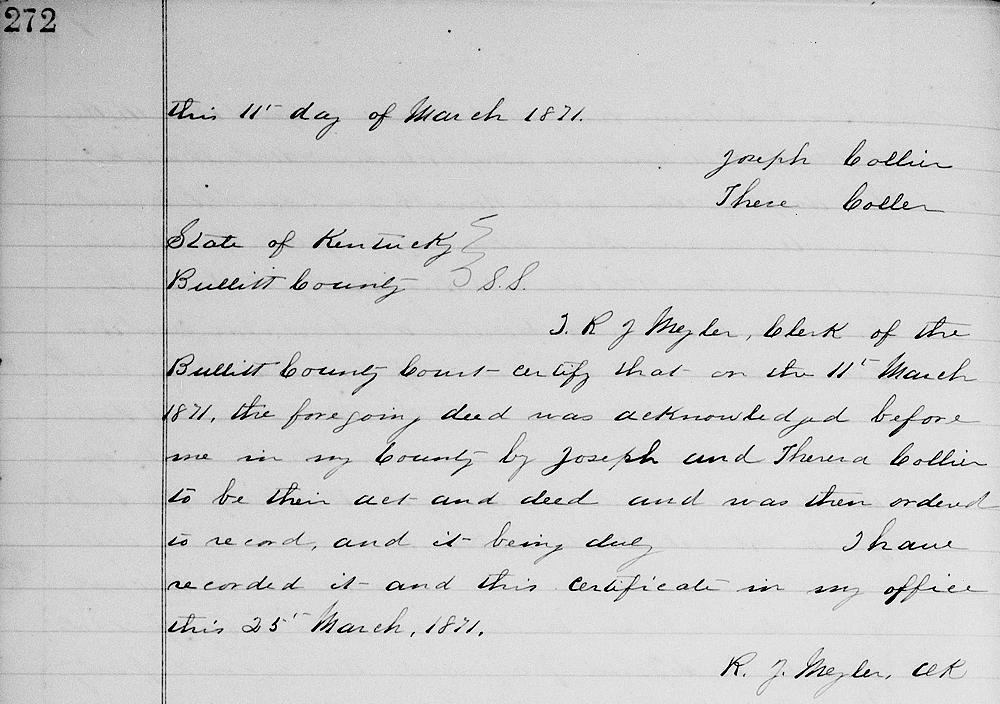 272
this 11' day of March 1871.
Joseph Collier
There Coller
State of Kentucky
Bullitt County S.S.
I. R J Meyler, Clerk of the
Bullitt County Court certify that on the 11' March
1871, the foregoing deed was acknowledged before
me in my County by Joseph and Theresa Collier
to be their act and deed and was then ordered
to record, and it being duly I have
recorded it and this certificate in my office
this 25' March, 1871.
R. J. Meyler, Clk